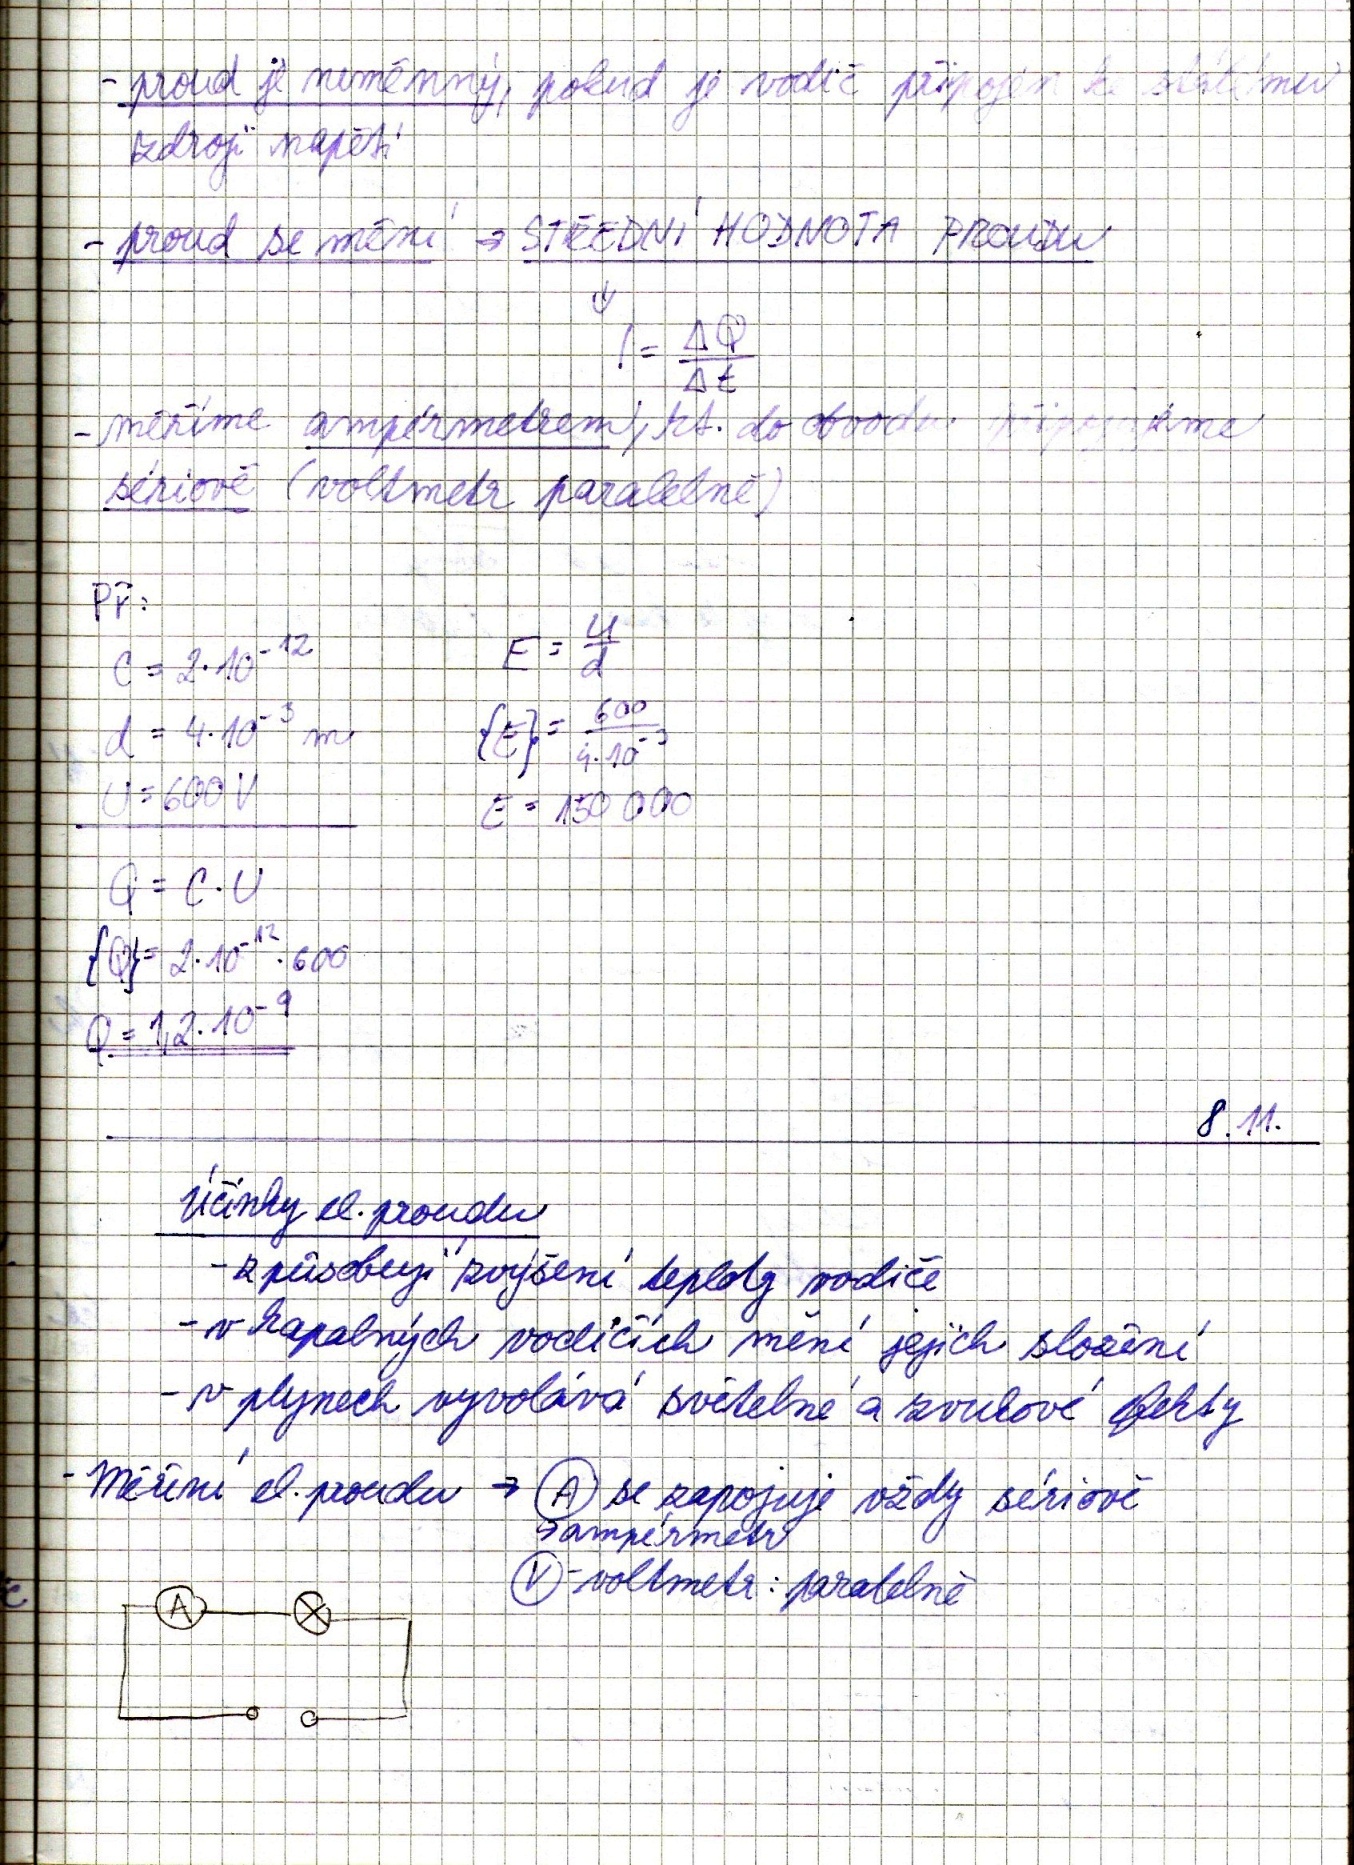 - proud je neměnný, pokud je vodič připojen ke stálému
zdroji napětí
- proud se mění → STŘEDNÍ HODNOTA PROUDU
↓
I = ΔQ / Δt
- měříme ampérmetrem, kt. do obvodu připojujeme
sériově (voltmetr paralelně)
Př:
C = 2·10⁻¹² E = U/d
d = 4·10⁻³ m {E} = 600 / 4·10⁻³
U = 600 V E = 150 000
Q = C·U
{Q} = 2·10⁻¹²·600
Q = 1,2·10⁻⁹
8.11.
Účinky el. proudu
- způsobují zvýšení teploty vodiče
- v kapalných vodičích mění jejich složení
- v plynech vyvolává světelné a zvukové efekty
- Měření el. proudu → A se zapojuje vždy sériově
→ ampérmetr
V - voltmetr: paralelně
A